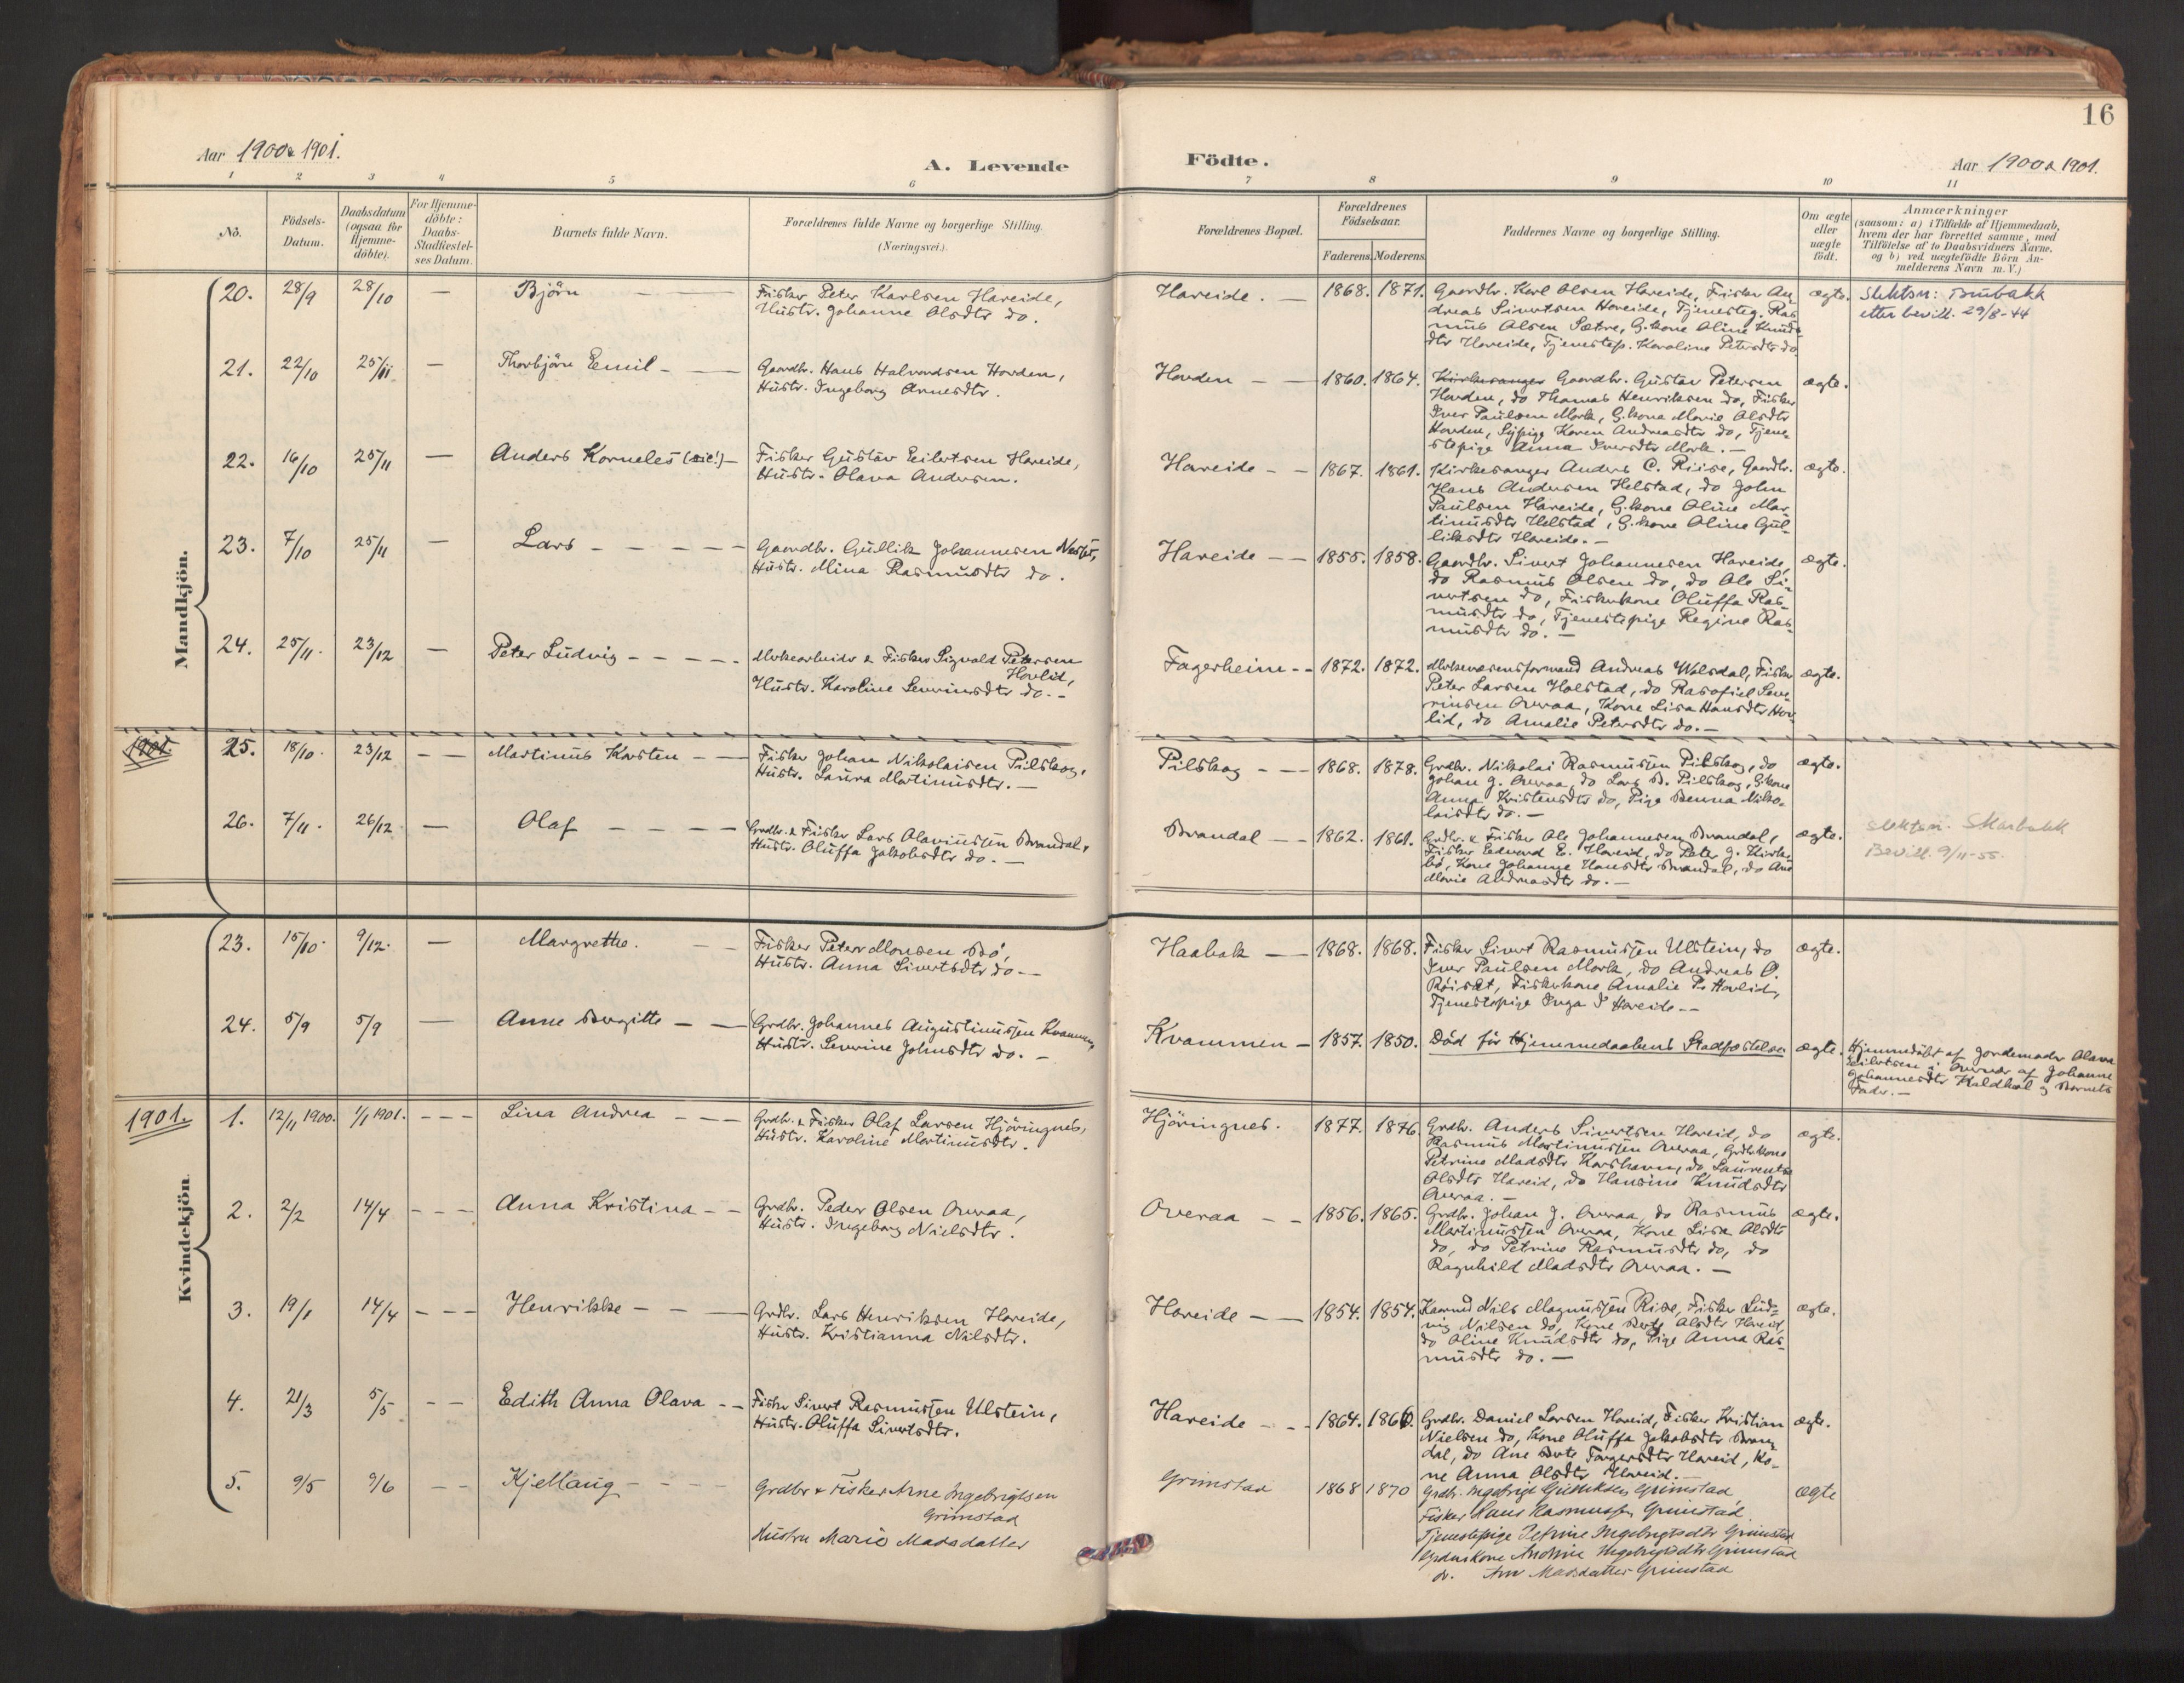 16
Aar 1900 & 1901.
A. Levende
Födte.
Aar 1900 & 1901.
1 2 3 4 5 6
7 8 9 10 11
No.
Födsels-
Datum.
Daabsdatum
(ogsaa for
Hjemme-
döbte).
For Hjemme-
döbte:
Daabs-
Stadfæstel-
ses Datum.
Barnets fulde Navn.
Forældrenes fulde Navne og borgerlige Stilling.
(Næringsvei.)
Forældrenes Bopæl.
Forældrenes
Födselsaar.
Faderens. Moderens.
Faddernes Navne og borgerlige Stilling.
Om ægte
eller
uægte
födt.
Anmærkninger
(saasom: a) i Tilfælde af Hjemmedaab,
hvem der har forrettet samme, med
Tilföielse af to Daabsvidners Navne.
og b) ved uægtefödte Börn An-
melderens Navn m. V.)
Mandkjön.
20. 28/9 28/10 — Björn
Fisker Peter Karlsen Hareide,
Hustr. Johanne Olsdtr do.
Hareide. 1868. 1871.
Gaardbr. Karl Olsen Hareide, Fisker An-
dreas Sivertsen Hareide, Tjenesteg. Ras-
mus Olsen Sætre, G.kone Oline Knuds-
dtr Hareide, Tjenestep. Karoline Petersdtr do.
ægte.
Slektsn:
etter bevill. 29/8-44
21. 22/10 25/11 — Thorbjörn Emil
Gaardbr. Hans Halvordsen Hovden,
Hustr. Ingeborg Arnesdtr.
Hovden 1860. 1864.
Kirkesanger Gaardbr. Gustav Petersen
Hovden, do Thomas Henriksen do, Fisker
Iver Paulsen Mork, G.kone Marie Olsdtr
Hovden, Sypige Karen Andreasdtr do, Tjene-
stepige Anna Iversdtr Mork.
ægte.
22. 16/10 25/11 — Anders Korneles (sic!)
Fisker Gustav Eilertsen Hareide,
Hustr. Olava Andersen.
Hareide 1867. 1861.
Kirkesanger Anders C. Riise, Gaardbr.
Hans Andersen Helstad, do John
Paulsen Hareide, G.kone Oline Mar-
tinusdtr Helstad, G.kone Oline Gul-
liksdtr Hareide.
ægte.
23. 7/10 25/11 — Lars
Gaardbr. Gullik Johannesen
Hustr. Mina Rasmusdtr do.
Hareide 1855. 1858.
Gaardbr. Sivert Johannesen Hareide,
do Rasmus Olsen do, do Ole Si-
vertsen do, Fiskerkone Oluffa Ras-
musdtr do, Tjenestepige Regine Ras-
musdtr do.
ægte.
24. 25/11. 23/12 — Peter Ludvig
& Fisker Sigvald Petersen
Hovlid,
Hustr. Karoline Severinsdtr do.
Fagerheim 1872. 1872.
Andreas Walsdal, Fisker
Peter Larsen Holstad, do Seve-
rinsen Overaa, Kone Lisa Hansdtr Hov-
lid, do Amalie Petersdtr do.
ægte.
1901.
25. 18/10. 23/12 — Martinus Karsten
Fisker Johan Nikolaisen Pilskog,
Hustr. Laura Martinusdtr.
Pilskog 1868. 1878.
Grdbr. Nikolai Rasmussen Pilskog, do
Johan J. Overaa, do Lars Pilskog, G.kone
Anna Kristensdtr do, Pige Nico-
laisdtr do.
ægte.
26. 7/11. 26/12 — Olaf
Grdbr. & Fisker Lars Olavinssen Brandal,
Hustr. Oluffa Jakobsdtr do.
Brandal 1862. 1861.
Grdbr. & Fisker Ole Johannesen Brandal,
Fisker Edvard E. Hareid, do Peter J. Kirke-
bø, Kone Johanne Hansdtr Brandal, do Ane
Marie Andreasdtr do.
ægte.
Slektsn. Skarbakk
Bevill. 9/11-55.
Kvindekjön.
23. 15/10. 9/12. — Margrethe.
Fisker Peter Monsen Bö,
Hustr. Anna Sivertsdtr do
Haabak 1868. 1868.
Fisker Sivert Rasmussen Ulstein, do
Iver Paulsen Mork, do Andreas O.
Röiset, Fiskerkone Amalie P. Hovlid,
Tjenestepige Inga Hareide
ægte.
24. 5/9 5/9 — Anne Bergitte
Grdbr. Johannes Augustinussen Kvammen,
Hustr. Severine Johnsdtr do.
Kvammen 1857. 1850.
Död för Hjemmedaabens Stadfæstelse.
ægte.
Hjemmedöbt af Jordemoder Olava
Eilertsen i Overvær af Johanne
Johannesdtr Kaldhol og Barnets
Fader.
1901.
1. 12/11 1900. 1/1 1901. — Lina Andrea
Grdbr. & Fisker Olaf Larsen Hjöringnes,
Hustr. Karoline Martinusdtr.
Hjöringnes. 1877. 1876.
Grdbr. Anders Sivertsen Hareid, do
Rasmus Martinussen Overaa, Grdbrkone
Petrine Madsdtr Korshavn, do Laurentse
Olsdtr Hareid, do Hansine Knudsdtr
Overaa.
ægte.
2. 2/2 14/4 — Anna Kristina
Grdbr. Peder Olsen Overaa,
Hustr. Ingeborg Nielsdtr.
Overaa 1856. 1865.
Grdbr. Johan J. Overaa, do Rasmus
Martinussen Overaa, Kone Lisa Olsdtr
do, do Petrine Rasmusdtr do, do
Ragnhild Madsdtr Overaa.
ægte.
3. 19/1 14/4 — Henrikke
Grdbr. Lars Henriksen Hareide,
Hustr. Kristianna Nilsdtr.
Hareide 1854. 1854.
Kaarmd Nils Magnussen Rise, Fisker Lud-
vig Nilsen do, Kone Berte Olsdtr Hareid,
do Oline Knudsdtr do, Pige Anna Ras-
musdtr do.
ægte.
4. 21/3 5/5 — Edith Anna Olava
Fisker Sivert Rasmussen Ulstein,
Hustr. Oluffa Sivertsdtr.
Hareide 1864. 1866.
Grdbr. Daniel Larsen Hareid, Fisker Kristian
Nielsen do, Kone Oluffa Jakobsdtr Bran-
dal, do Ane Berte Torgersdtr Hareid, Ko-
ne Anna Olsdtr Hareid.
ægte.
5. 9/5 9/6 — Kjellaug
Grdbr & Fisker Arne Ingebrigtsen
Grimstad
Hustru Marie Madsdatter
Grimstad 1868 1870
Grdbr. Ingebrigt Gulliksen Grimstad
Fisker Hans Rasmussen Grimstad
Tjenestepige Petrine Ingebrigtsdtr Grimstad
Grdbrskone Ingebrigtsdtr Grimstad
do. Madsdatter Grimstad
ægte